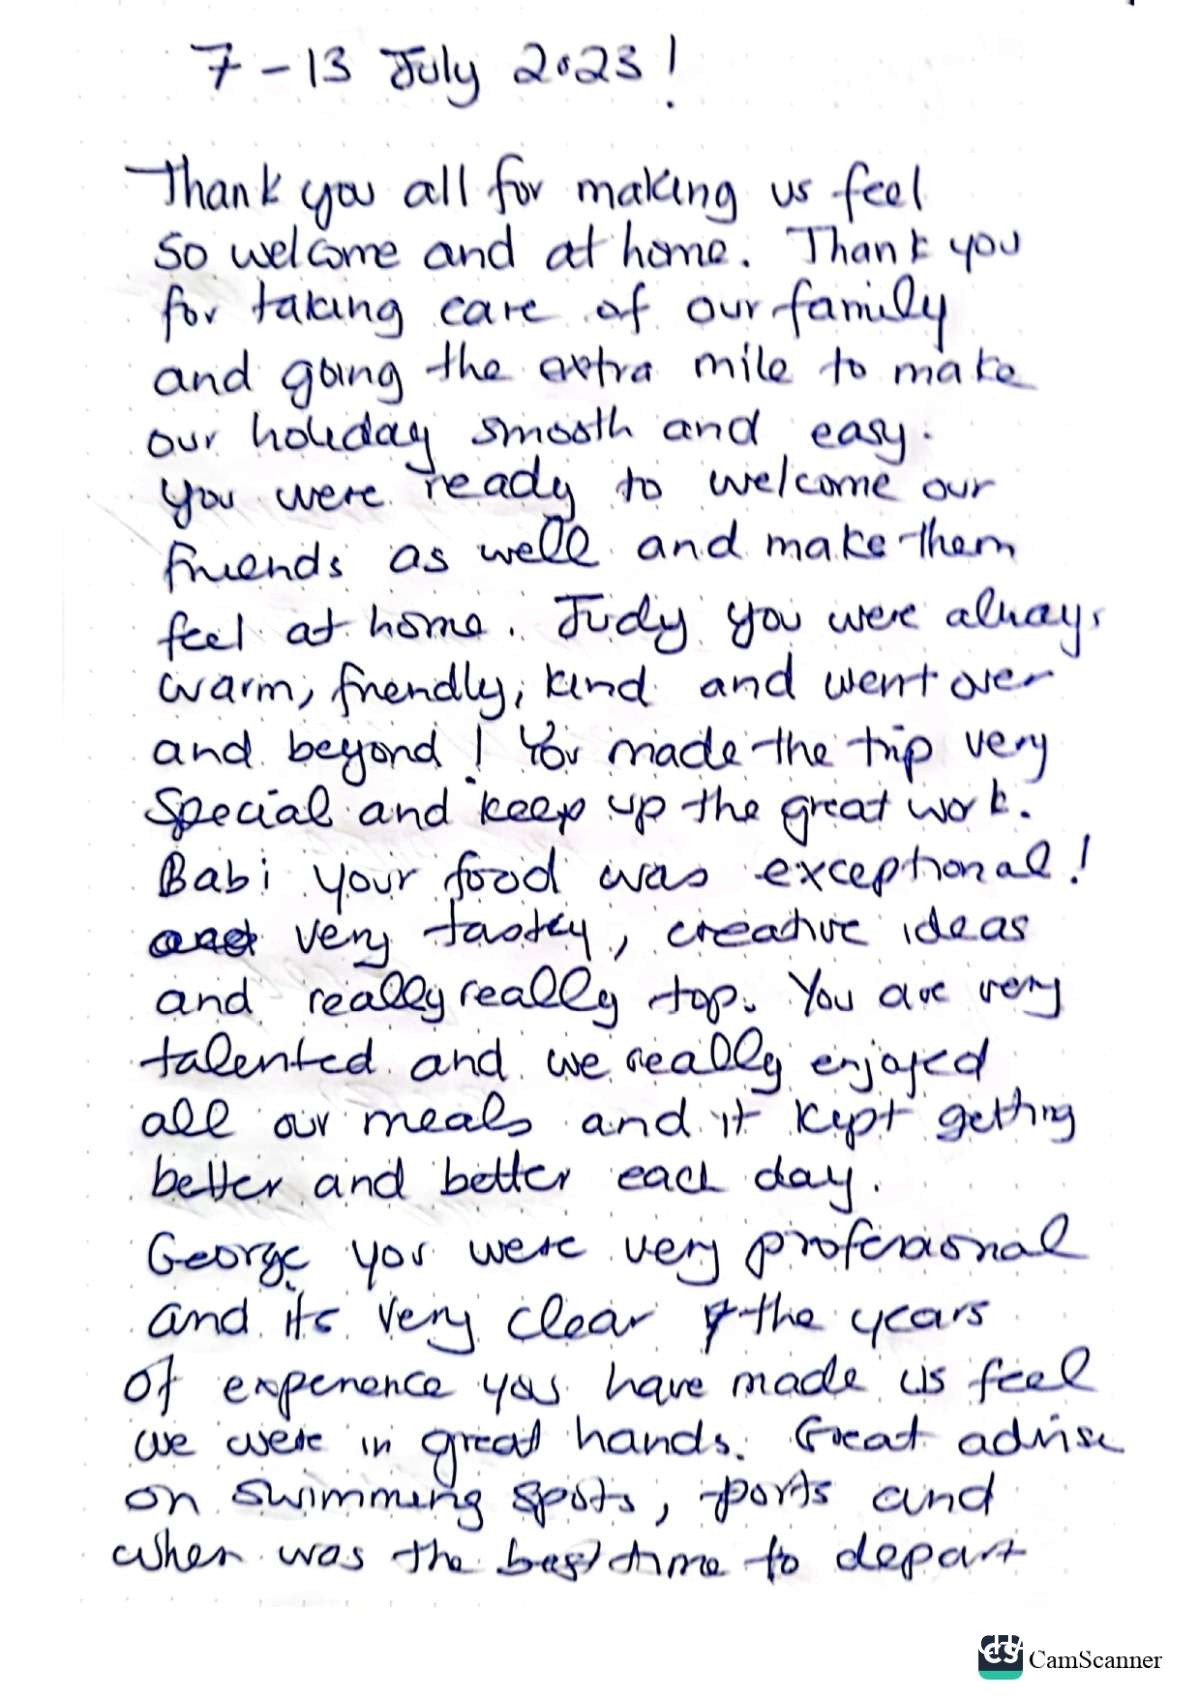 7-13 July 2023!
Thank you all for making us feel
so welcome and at home. Thank you
for taking care of our family
and going the extra mile to make
our holiday smooth and easy.
You were ready to welcome our
friends as well and make them
feel at home. Judy you were always
warm, friendly, kind and went over
and beyond! You made the trip very
special and keep up the great work.
Babi your food was exceptional!
very tastey, creative ideas
and really really top. You are very
talented and we really enjoyed
all our meals and it kept getting
better and better each day.
George you were very professional
and its very clear the years
of experience you have made us feel
we were in great hands. Great advise
on swimming spots, ports and
when was the best time to depart
CS CamScanner